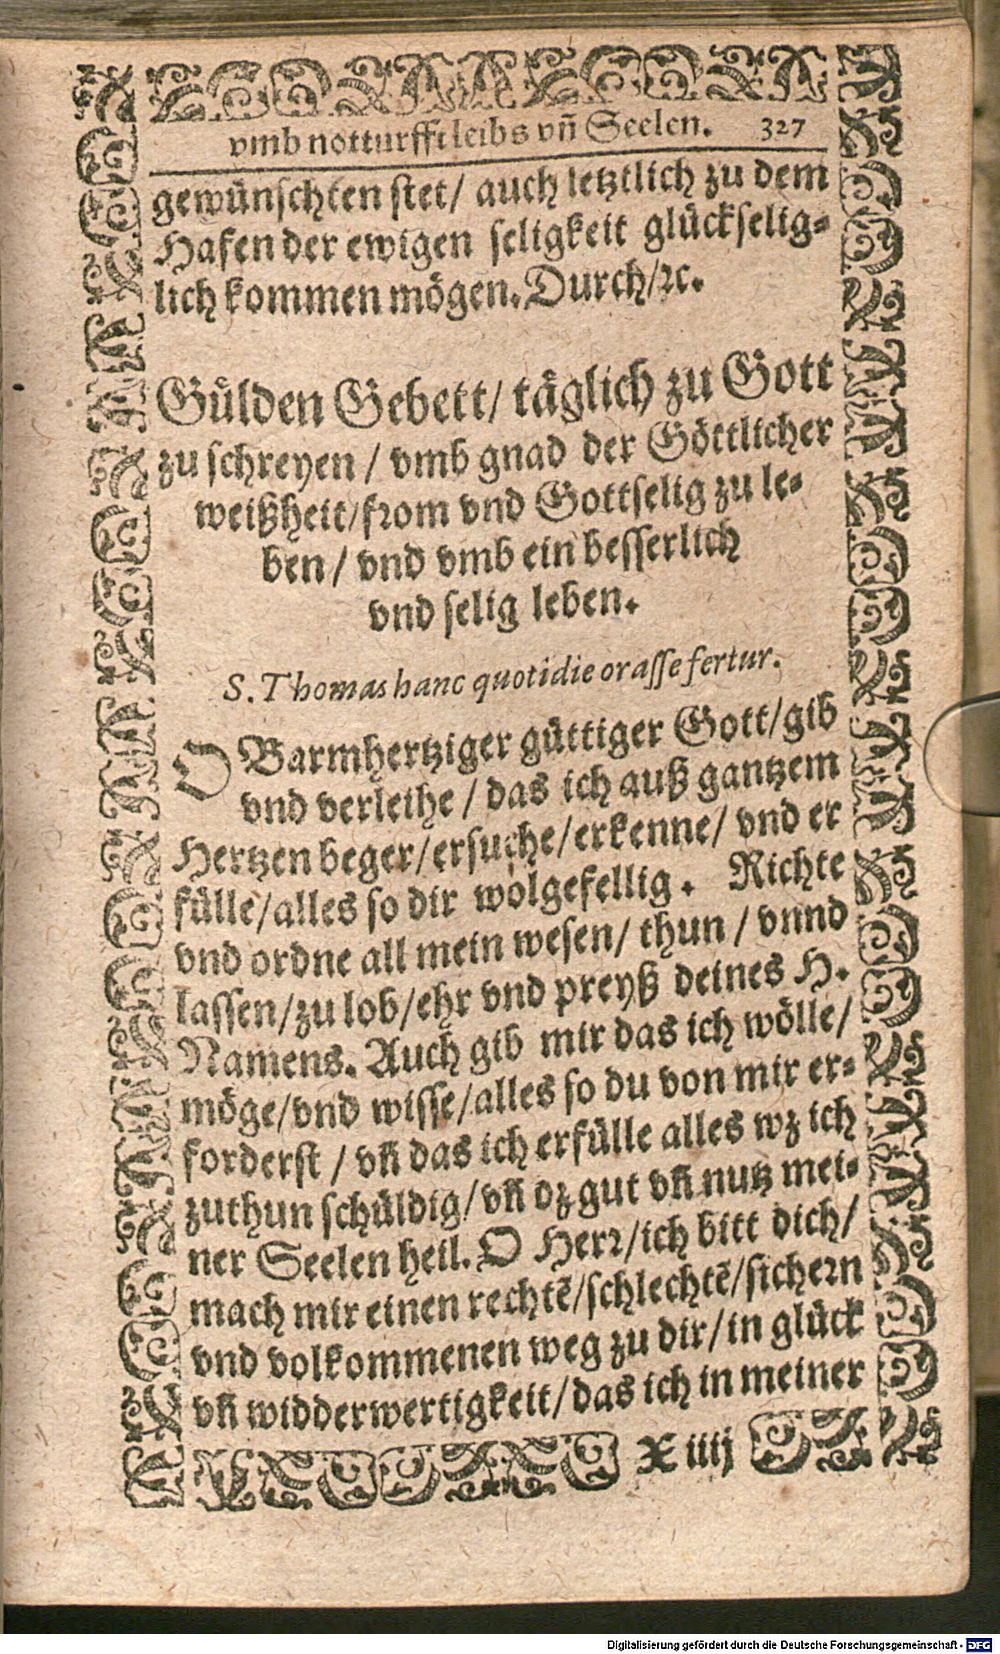 vmb notturfft leibs vñ Seelen. 327
gewünschten stet/ auch letztlich zu dem
Hafen der ewigen seligkeit glückselig-
lich kommen mögen. Durch/ꝛc.
Gülden Gebett/ täglich zu Gott
zu schreyen / vmb gnad der Göttlicher
weißheit/ from vnd Gottselig zu le-
ben / vnd vmb ein besserlich
vnd selig leben.
S. Thomas hanc quotidie orasse fertur.
O Barmhertziger güttiger Gott/ gib
vnd verleihe / das ich auß gantzem
Hertzen beger/ ersuche/ erkenne/ vnd er
fülle/ alles so dir wolgefellig. Richte
vnd ordne all mein wesen/ thun / vnnd
lassen/ zu lob/ ehr vnd preyß deines H.
Namens. Auch gib mir das ich wölle/
möge/ vnd wisse/ alles so du von mir er-
forderst / vñ das ich erfülle alles wz ich
zuthun schüldig/ vñ dz gut vñ nutz mei-
ner Seelen heil. O Herr/ ich bitt dich/
mach mir einen rechtẽ/ schlechtẽ/ sichern
vnd volkommenen weg zu dir/ in glück
vñ widderwertigkeit/ das ich in meiner
X iiij
Digitalisierung gefördert durch die Deutsche Forschungsgemeinschaft - DFG